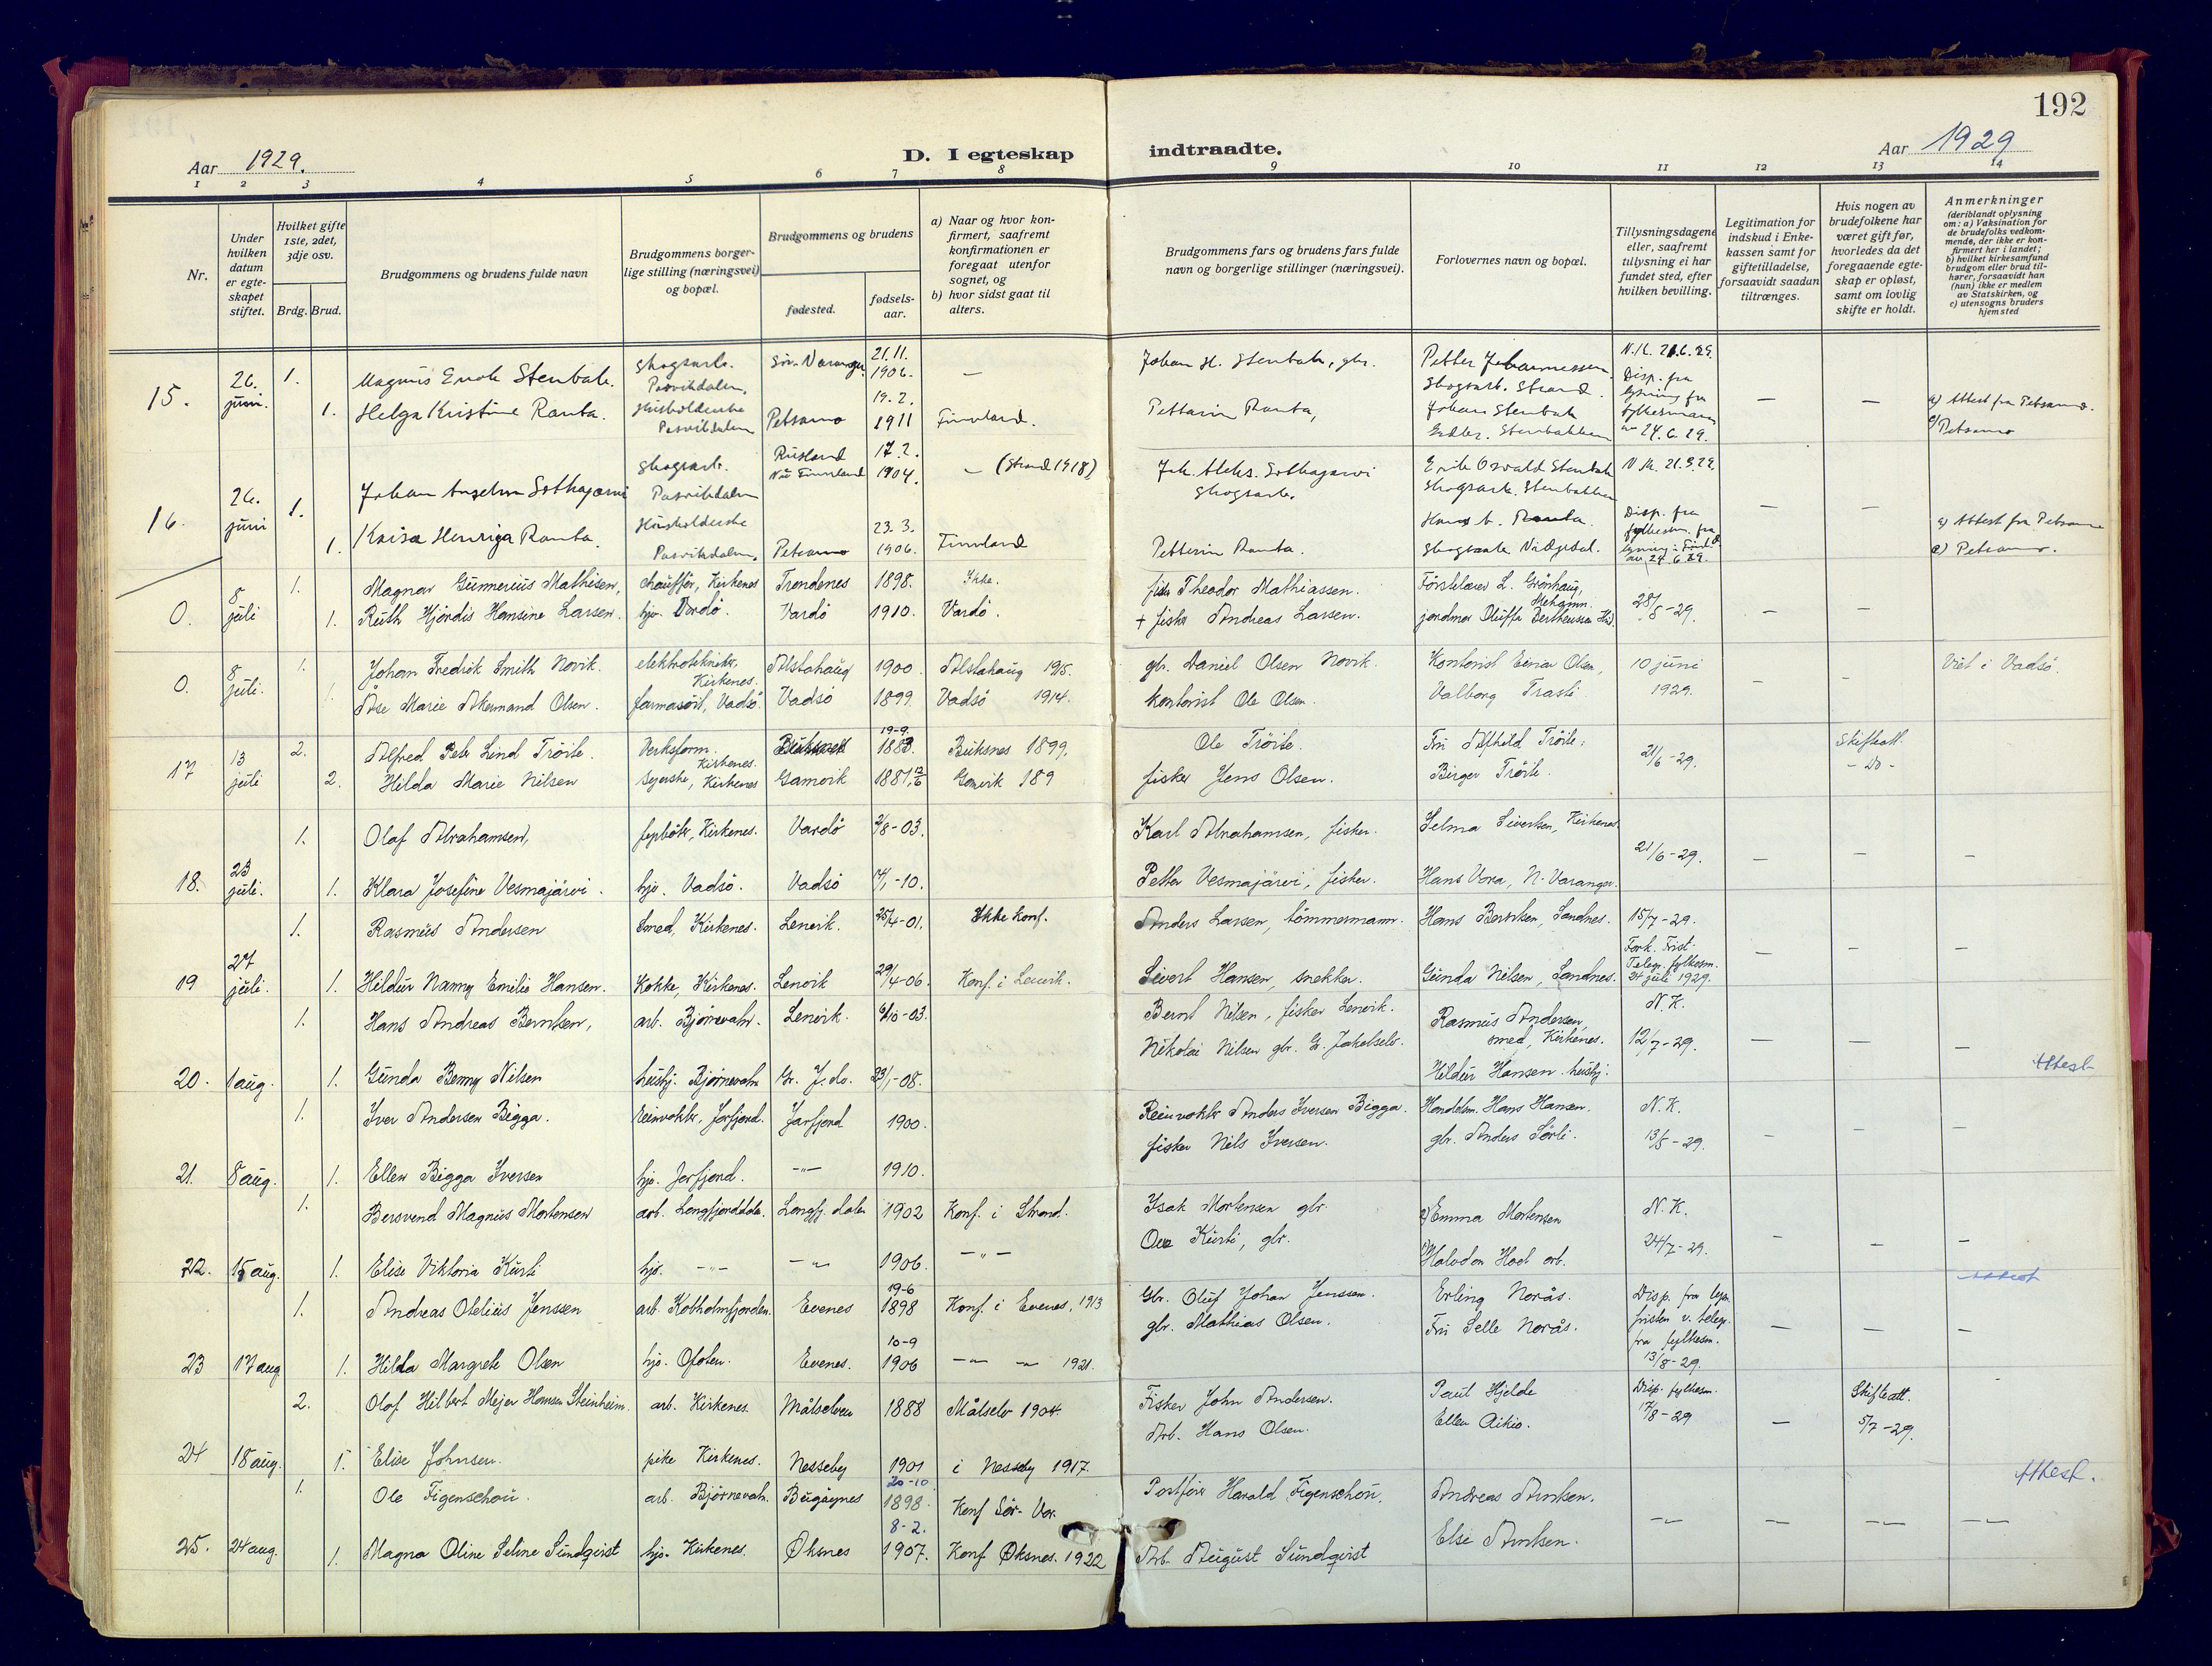 192
Aar 1929.
D. I egteskap indtraadte.
Aar 1929
1 2 3 4 5 6 7 8 9 10 11 12 13 14
Nr.
Under hvilken datum er egte-skapet stiftet.
Hvilket gifte 1ste, 2det, 3dje osv.
Brdg. Brud.
Brudgommens og brudens fulde navn
Brudgommens borger-lige stilling (næringsvei) og bopæl.
Brudgommens og brudens
fødested.
fødsels-aar.
a) Naar og hvor kon-firmert, saafremt konfirmationen er foregaat utenfor sognet, og
b) hvor sidst gaat til alters.
Brudgommens fars og brudens fars fulde navn og borgerlige stillinger (næringsvei).
Forlovernes navn og bopæl.
Tillysningsdagene eller, saafremt tillysning ei har fundet sted, efter hvilken bevilling.
Legitimation for indskud i Enke-kassen samt for giftetilladelse, forsaavidt saadan tiltrænges.
Hvis nogen av brudefolkene har været gift før, hvorledes da det foregaaende egte-skap er opløst, samt om lovlig skifte er holdt.
Anmerkninger (deriblandt oplysning om: a) Vaksination for de brudefolks vedkom-mende, der ikke er kon-firmert her i landet; b) hvilket kirkesamfund brudgom eller brud til-hører, forsaavidt han (hun) ikke er medlem av Statskirken, og c) utensogns bruders hjemsted
15. 26. juni. 1. Magnus Enok Stenbak. skogsarb. Pasvikdalen. Sør-Varanger 21.11. 1906. — Johan H. Stenbak, gbr. Petter Johannessen skogsarb. Strand. N.K. 21.6.29.
1. Helga Kristine Ranta. Husholderske Pasvikdalen Petsamo 19.2. 1911 Finnland. Petterin Ranta, Johan Stenbak Gbr. Stenbakken Disp. fra lysning fra fylkesmann av 24.6.29. — — a) Attest fra Petsamo. c) Petsamo
16. 26. juni 1. Johan Anselm Sotkajærvi skogsarb. Pasvikdalen Rusland Nu Finnland 17.2. 1904. — (Strand 1918) Joh. Aleks. Sotkajærvi skogsarb. Erik Osvald Stenbak skogsarb. Stenbakken N.K. 21.3.29.
1. Kaisa Henriga Ranta. Husholderske Pasvikdalen. Petsamo 23.3. 1906. Finnland Petterin Ranta. Hans A. Ranta. skogsarb. Disp. fra fylkesm. fra lysning av 24.6.29. — — a) Attest fra Petsamo c) Petsamo.
0. 8 juli 1. Magnar Gunnerius Mathisen, chauffør, Kirkenes Trondenes 1898. Ikke. fisk. Theodor Mathiassen. Førstelærer L. Grønhaug, Mehamn. 28/8-29. — —
1. Ruth Hjørdis Hansine Larsen. hjv. Vardø. Vardø 1910. Vardø. + fisker Andreas Larsen. jordmor Oluffa Bertheussen
0. 8 juli. 1. Johan Fredrik Smith Novik. elektrotekniker, Kirkenes. Alstahaug 1900 Alstahaug 1915. gbr. Daniel Olsen Novik. Kontorist Einar Olsen, 10 juni 1929. — — Viet i Vadsø.
1. Åse Marie Akermand Olsen. farmasøit, Vadsø. Vadsø 1899. Vadsø 1914. kontorist Ole Olsen. Valborg Trasti.
17 13 juli 2. Alfred Peder Lind Trøite. Verksform. Kirkenes. Buksnes 19-9. 1883. Buksnes 1899. Ole Trøite. Fru Alfhild Trøite. 21/6-29. Skifteatt.
2. Hilda Marie Nilsen syerske, Kirkenes Gamvik 1881. 12/6 Gamvik 189 fisker Jens Olsen. Birger Trøite. - Do -
18. 23 juli. 1. Olaf Abrahamsen, fyrbøter, Kirkenes. Vardø 2/8-03. Karl Abrahamsen, fisker. Selma Sivertsen, Kirkenes 21/6-29. — — —
1. Klara Josefine Vesmajärvi. hjv. Vadsø. Vadsø 14/1-10. Petter Vesmajärvi, fisker. Hans Vora, N-Varanger.
19 27 juli. 1. Rasmus Andersen Smed, Kirkenes. Lenvik. 25/4-01. Ikke konf. Anders Larsen, tømmermann. Hans Berntsen, Sandnes. 15/7-29. Fork. Frist. — — —
1. Hildur Nanny Emilie Hansen. Kokke, Kirkenes. Lenvik 29/4-06. Konf. i Lenvik. Sivert Hansen, snekker. Gunda Nilsen, Sandnes. Telegr. fylkesm. 24 juli 1929.
20. 1 aug. 1. Hans Andreas Berntsen, arb. Bjørnevatn. Lenvik. 6/10-03. Bernt Nilsen, fisker Lenvik. Rasmus Andersen, smed, Kirkenes. N.K. 12/7-29. — — —
1. Gunda Benny Nilsen hushj. Bjørnevatn Gr. J. elv. 23/1-08. Nikolai Nilsen gbr. Gr. Jakobselv. Hildur Hansen. hushj. Attest
21. 8 aug. 1. Iver Andersen Bigga. Reinvokter, Jarfjord. Jarfjord 1900. Reinvokter Anders Iversen Bigga. Handelsm. Hans Hansen. N.K. 13/5-29. — — —
1. Ellen Bigga Iversen hjv. Jarfjord. -"- 1910. fisker Nils Iversen. gbr. Anders Sørli.
22. 15 aug. 1. Bersvend Magnus Mortensen arb. Langfjorddalen. Langfj. dalen 1902 Konf. i Strand. Isak Mortensen gbr. 2) Emma Mortensen N.K. 24/7-29. — — —
1. Elise Viktoria Kurti hjv. -"- -"- 1906. -"- Ove Kurti, gbr. 1) Halvdan Hoel arb. Attest
23 17 aug 1. Andreas Otelius Jenssen arb. Kobholmfjorden. Evenes 19-6 1898 Konf. i Evenes, 1913 Gbr. Oluf Johan Jenssen. Erling Norås. Disp. fra lysn. fristen v. telegr. fra fylkesm. 13/8-29. — — —
1. Hilda Margrete Olsen hjv. Ofoten. Evenes. 10-9 1906 -"- -"- 1921. gbr. Mathias Olsen. Fru Selle Norås.
24 18 aug. 2. Olaf Hilbert Mejer Hansen Steinheim. arb. Kirkenes. Målselven 1888 Målselv 1904. Fisker John Andersen. Paul Hjelde Disp. fylkesm. 17/8-29 — Skifteatt. 5/7-29.
1. Elise Johnsen. pike Kirkenes. Nesseby 1901 i Nesseby 1917. Arb. Hans Olsen. Ellen Aikio.
25. 24 aug. 1. Ole Figenschou. arb. Bjørnevatn. Bugøynes 20-10 1898. Konf Sør-Var. Postfører Harald Figenschou. Andreas Arntsen. -"- — -"- -"- Attest.
1. Magna Oline Seline Sundqvist hjv. Kirkenes. Øksnes 8-2. 1907. Konf Øksnes. 1922 Arb. August Sundqvist Else Arntsen.